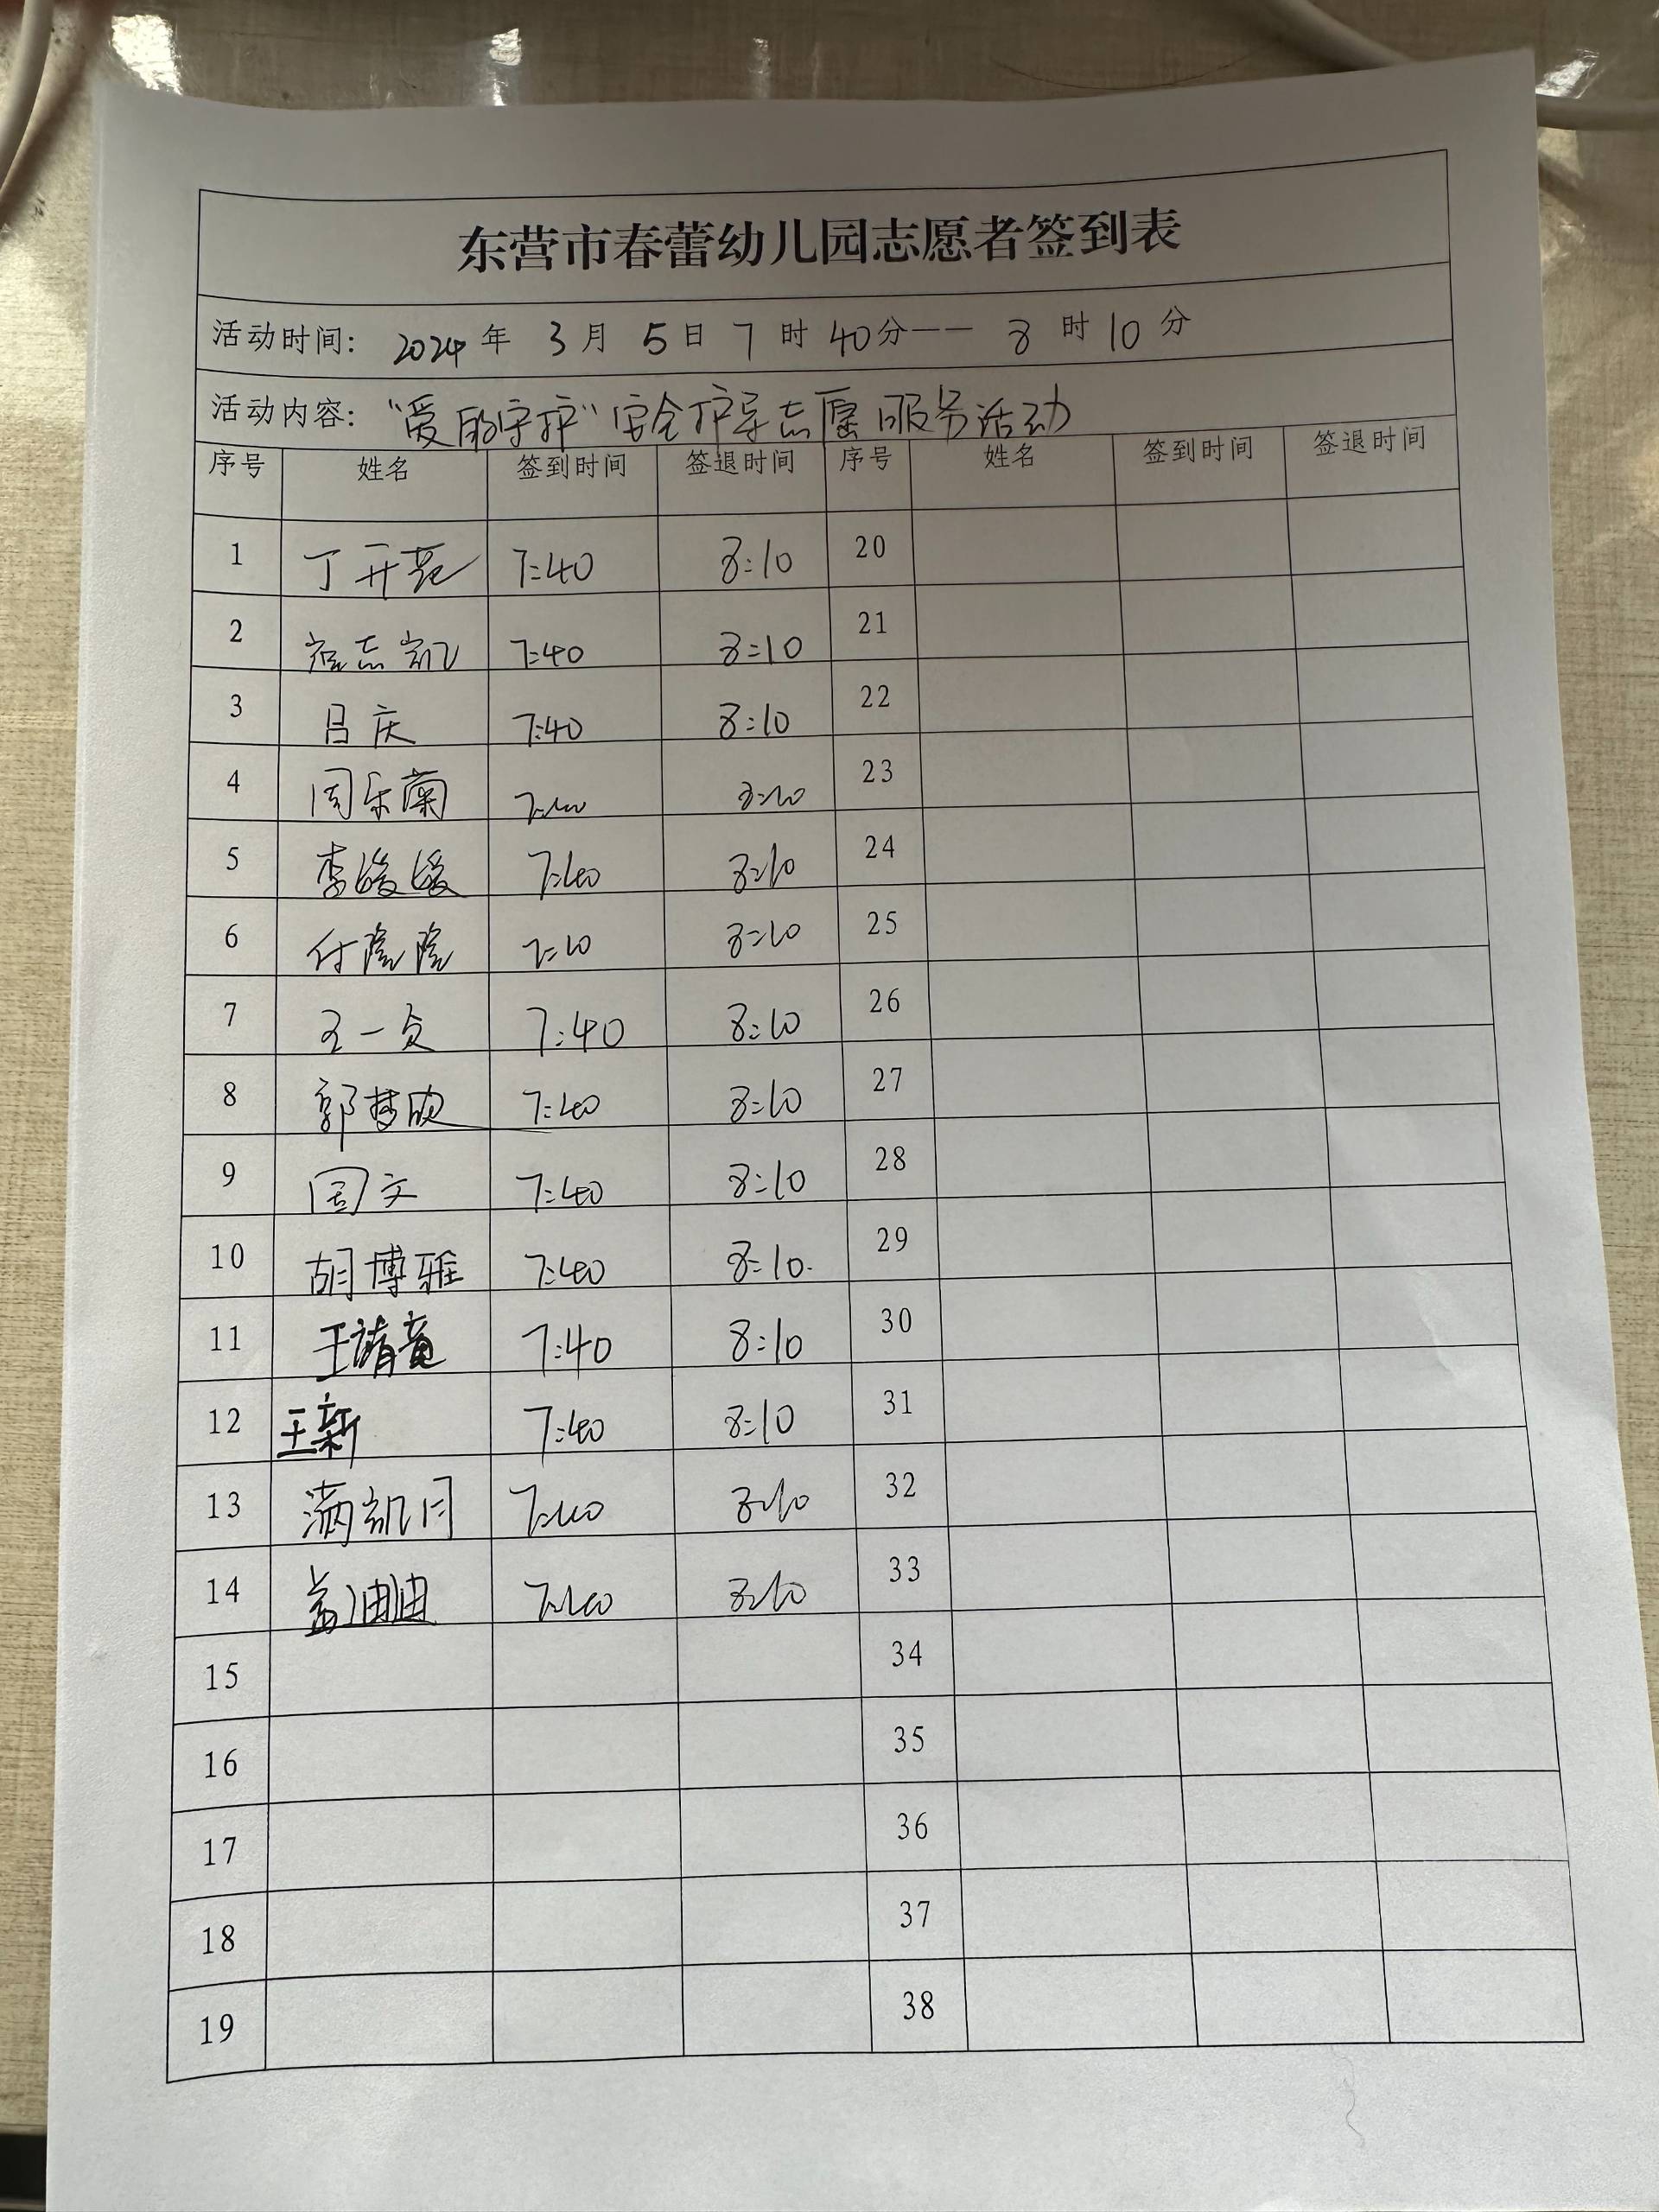 东营市春蕾幼儿园志愿者签到表
活动时间: 2024 年 3 月 5 日 7 时 40 分—— 8 时 10 分
活动内容: “爱的守护”安全护导志愿服务活动
序号 姓名 签到时间 签退时间 序号 姓名 签到时间 签退时间
1 丁开苑 7:40 8:10 20
2 志凯 7:40 8:10 21
3 吕庆 7:40 8:10 22
4 周乐兰 7:40 8:10 23
5 李媛媛 7:40 8:10 24
6 付隆隆 7:10 8:10 25
7 王一贞 7:40 8:10 26
8 郭梦欣 7:40 8:10 27
9 周文 7:40 8:10 28
10 胡博雅 7:40 8:10 29
11 王靖 7:40 8:10 30
12 王新 7:40 8:10 31
13 满凯月 7:40 8:10 32
14 盖迪迪 7:40 8:10 33
15 34
16 35
17 36
18 37
19 38